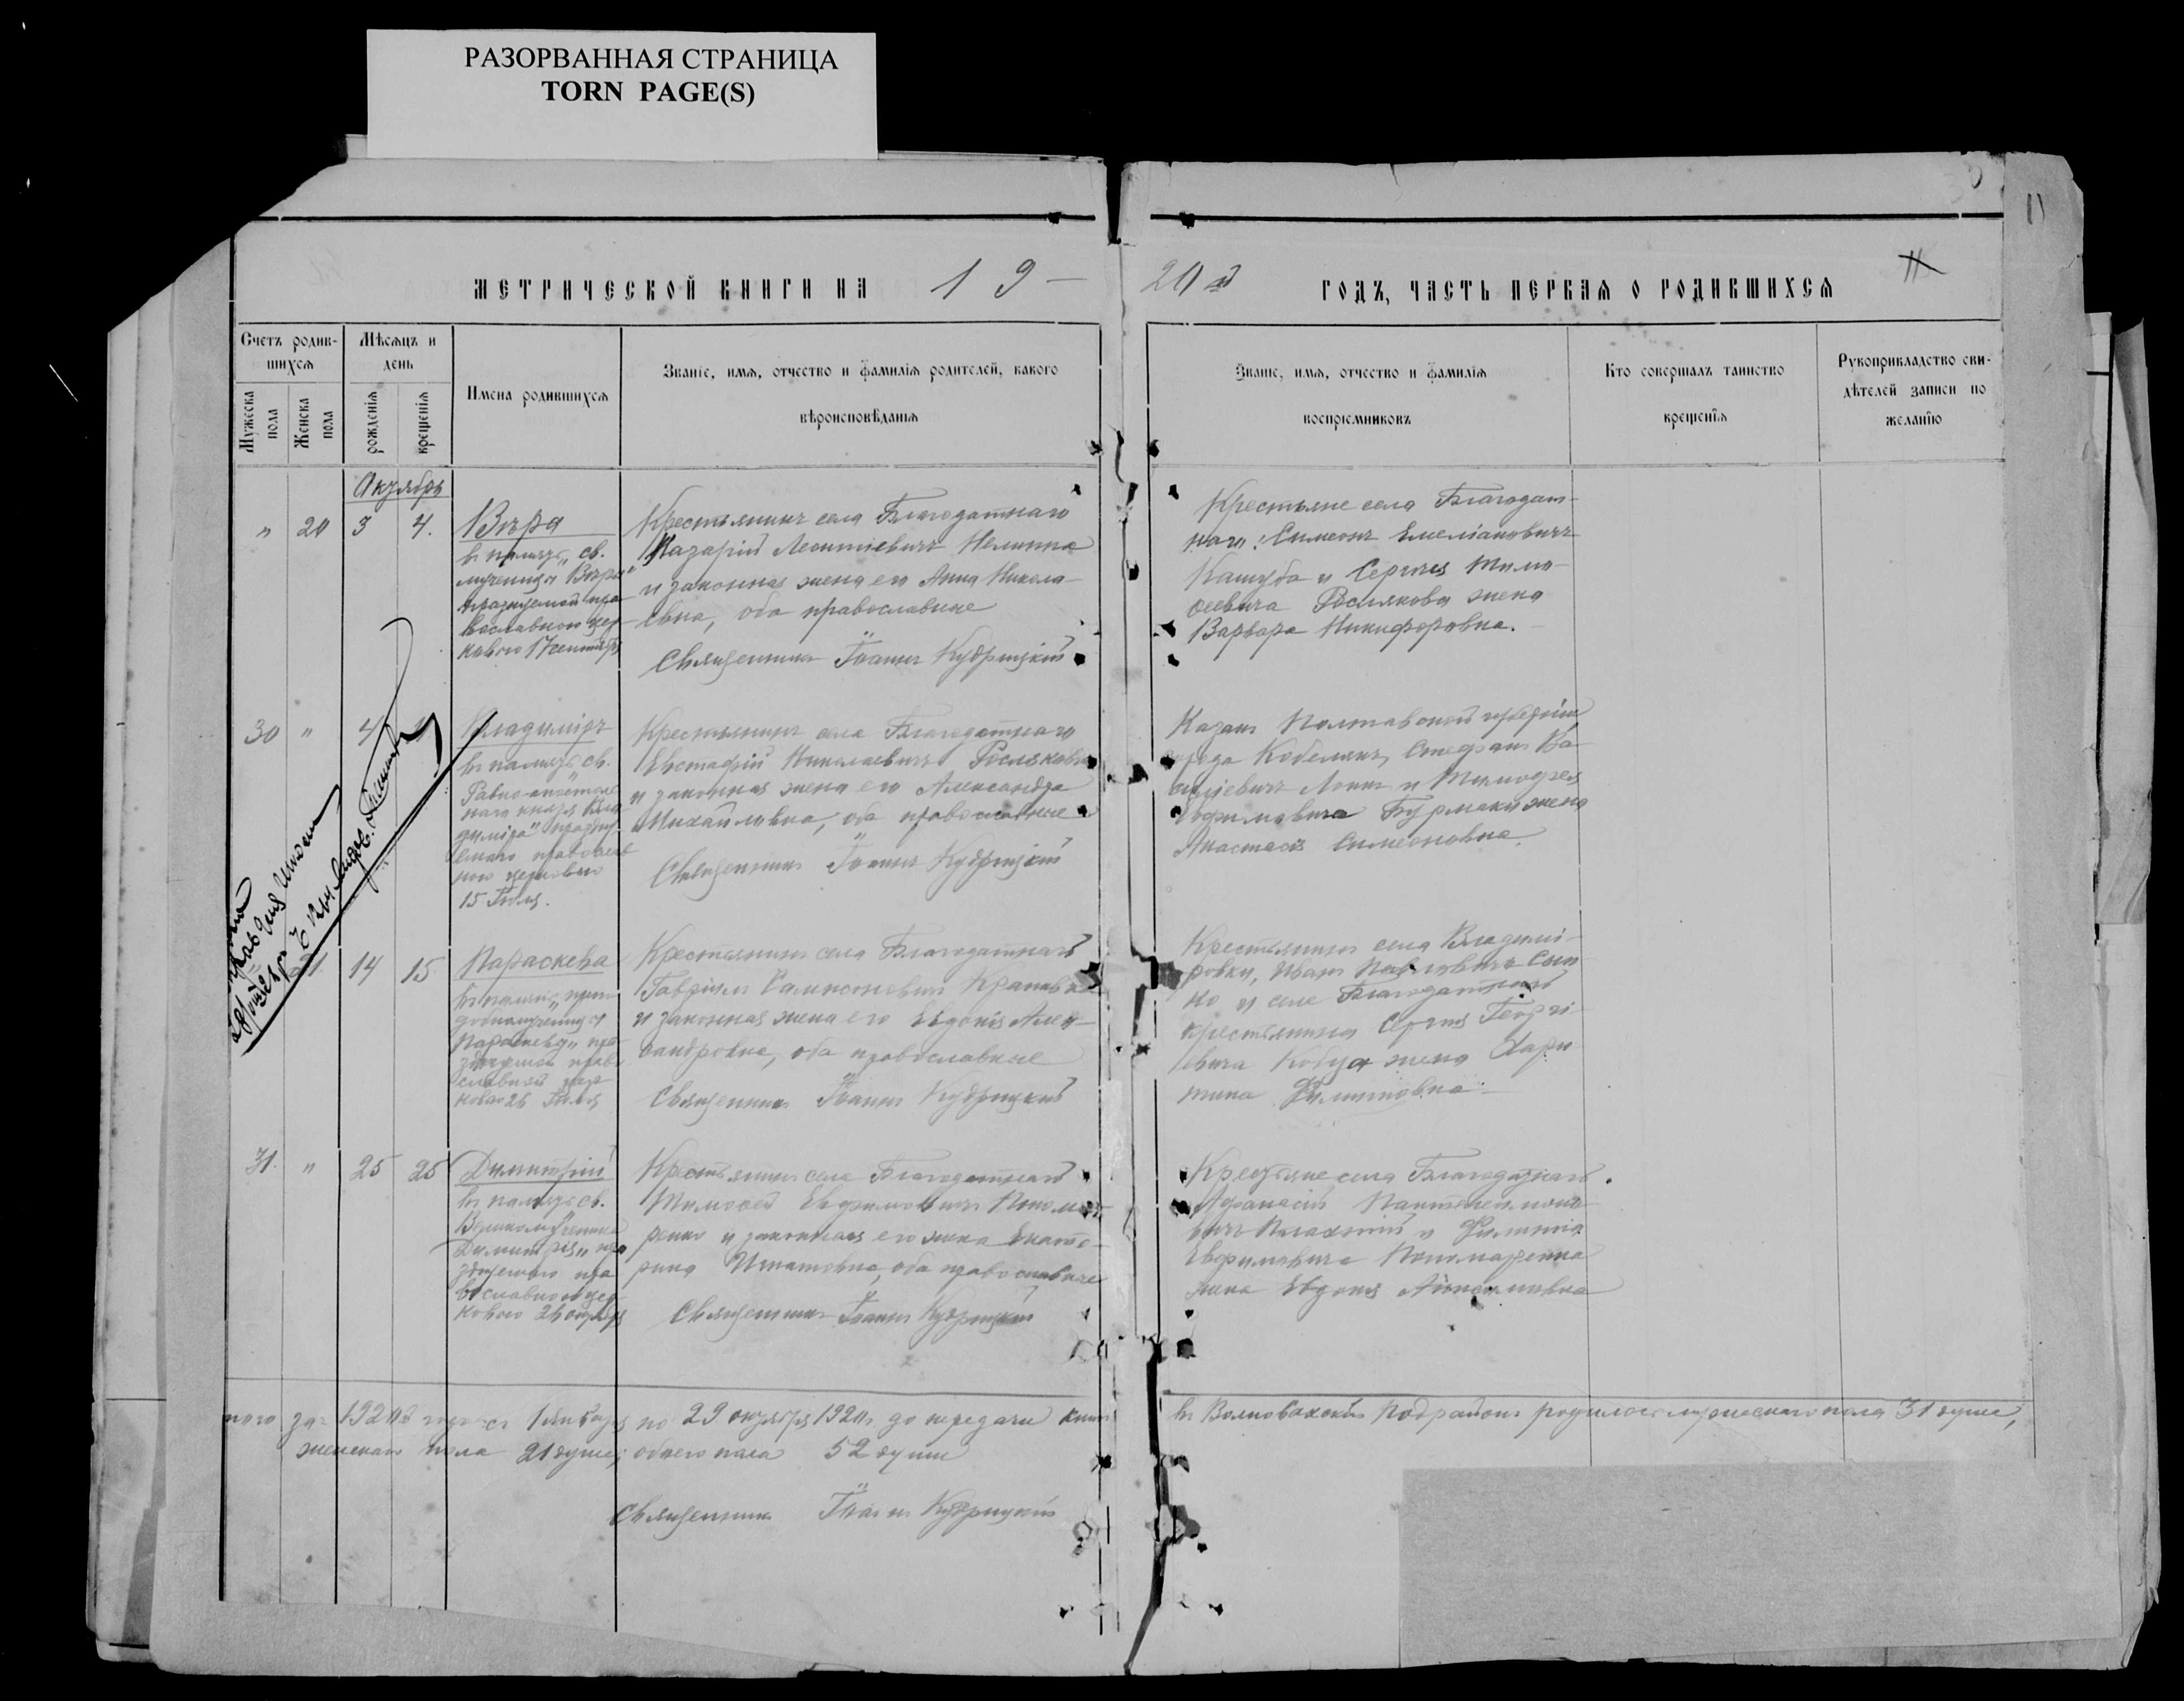 РАЗОРВАННАЯ СТРАНИЦА
TORN PAGE(S)
МЕТРИЧЕСКОЙ КНИГИ НА 19
20й ГОДЪ, ЧАСТЬ ПЕРВАЯ О РОДИВШИХСЯ
Счетъ родив-
шихся
Мѣсяцъ и
день
Мужеска
пола
Женска
пола
рожденія
крещенія
Имена родившихся
Званіе, имя, отчество и фамилія родителей, какого
вѣроисповѣданія
Званіе, имя, отчество и фамилія
воспріемниковъ
Кто совершалъ таинство
крещенія
Рукоприкладство сви-
дѣтелей записи по
желанію
Октябрь
" 20 3 4.
Вѣра
въ память св.
мученицы Вѣры"
празнуемой пра-
вославною цер-
ковью 17 сентября
Крестьянинъ села Благодатнаго
Назарій Леонтіевичъ
и законная жена его Анна Никола-
евна, оба православные
Священникъ Іоаннъ Кудрицкій
Крестьяне села Благодат-
наго: Симеонъ Емеліановичъ
Кашуба и Сергія Тимо-
ѳеевича Рослякова жена
Варвара Никифоровна.
30 " 4
Владиміръ
въ память св.
Равно-апостоль
наго князя Вла
диміра" праздну
емаго православ
ною церковью
15 Іюля.
Крестьянинъ села Благодатнаго
Евстафій Николаевичъ Росляковъ
и законная жена его Александра
Михайловна, оба православные
Священникъ Іоаннъ Кудрицкій
Казакъ Полтавской губерніи
города Кобелякъ, Стефанъ Ва-
жена
Анастасія Симеоновна.
21 14 15
Параскева
въ память препо
добномученицы
Параскевы" пра
здуемой право
славной цер
ковью 26 Іюля
Крестьянинъ села Благодатнаго
Гавріилъ Сампсоновичъ
и законная жена его Евдокія Алек-
сандровна, оба православные
Священникъ Іоаннъ Кудрицкій
Крестьянинъ села Владими-
ровки, Иванъ Павловичъ
ко и села Благодатнаго
крестьянина Сергія Георгі-
евича Кобца жена Хари-
тина Филипповна.
31. " 25 25
Димитрій
въ память св.
Великомученика
Димитрія" пра
здуемаго пра
вославною цер
ковью 26 октября
Крестьянинъ села Благодатнаго
Тимоѳей Евфимовичъ Понома-
ренко и законная его жена Екате-
рина Игнатовна, оба православные
Священникъ Іоаннъ Кудрицкій
Крестьяне села Благодатнаго
Афанасій Пантелеимоно-
вичъ и Филиппа
Евфимовича Пономаренка
жена Евдокія
за 1920й годъ съ 1 января по 29 октября 1920г. до передачи книгъ
въ Волновахскій Подрайонъ родилось мужескаго пола 31 душа,
женскаго пола 21 душа, обоего пола 52 души
Священникъ Іоаннъ Кудрицкій